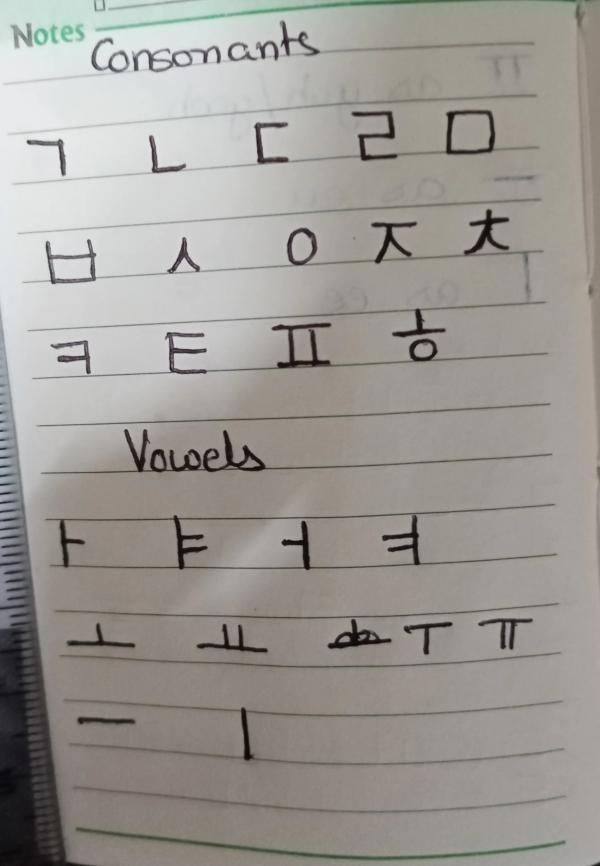 Notes
Consonants
ㄱ ㄴ ㄷ ㄹ ㅁ
ㅂ ㅅ ㅇ ㅈ ㅊ
ㅋ ㅌ ㅍ ㅎ
Vowels
ㅏ ㅑ ㅓ ㅕ
ㅗ ㅛ ㅜ ㅠ
ㅡ ㅣ